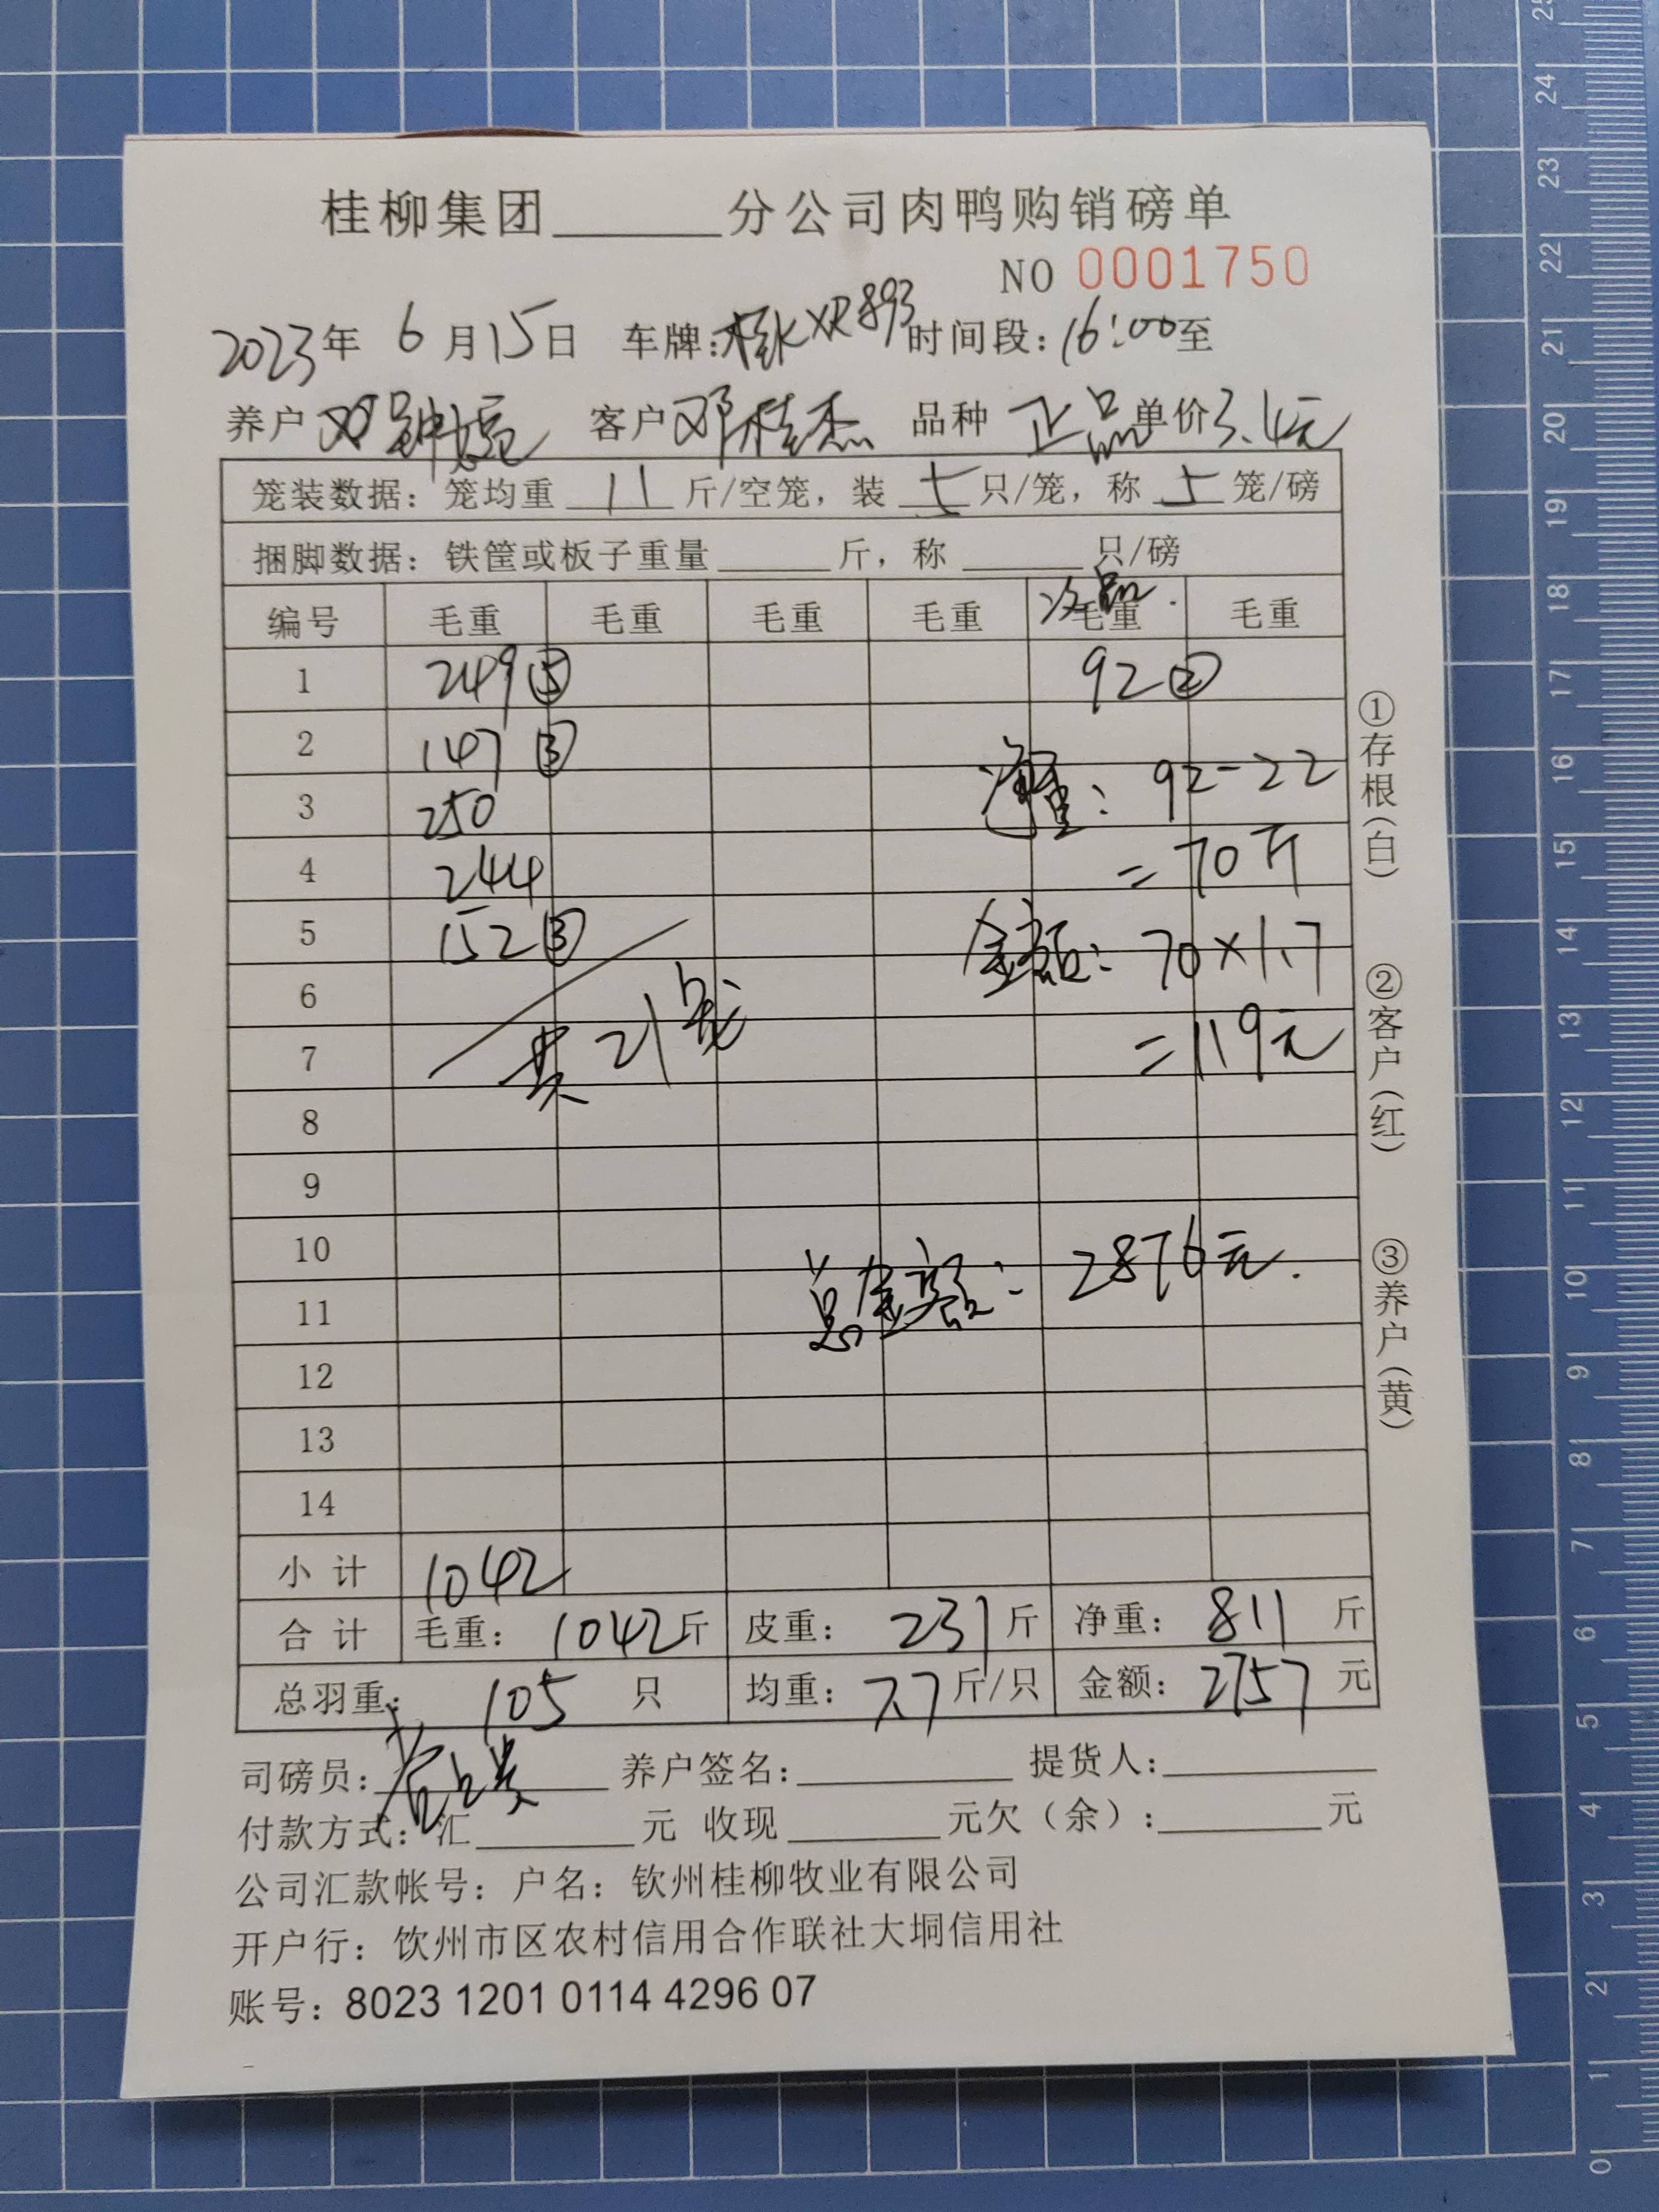 桂柳集团______分公司肉鸭购销磅单
NO 0001750
2023年 6月15日 车牌:桂KXR893 时间段:16:00至
养户 邓钟 客户 邓桂杰 品种 正品 单价 3.4元
笼装数据: 笼均重 11 斤/空笼, 装 5 只/笼, 称 5 笼/磅
捆脚数据: 铁筐或板子重量______斤, 称______只/磅
次品.
编号 毛重 毛重 毛重 毛重 毛重 毛重
1 249⑤ 92②
2 147③
净重: 92-22
3 250
=70斤
4 244
5 152③
金额: 70×1.7
6
共21笼
=119元
7
8
9
10
总金额: 2876元.
11
12
13
14
小计 1042
合计 毛重: 1042斤 皮重: 231斤 净重: 811斤
总羽重: 105 只 均重: 7.7斤/只 金额: 2757元
司磅员: 养户签名:______ 提货人:______
付款方式: 汇______元 收现______元欠(余):______元
公司汇款帐号: 户名: 钦州桂柳牧业有限公司
开户行: 饮州市区农村信用合作联社大垌信用社
账号: 8023 1201 0114 4296 07
①存根(白)
②客户(红)
③养户(黄)
25
24
23
22
21
20
19
18
17
16
15
14
13
12
11
10
9
8
7
6
5
4
3
2
1
0